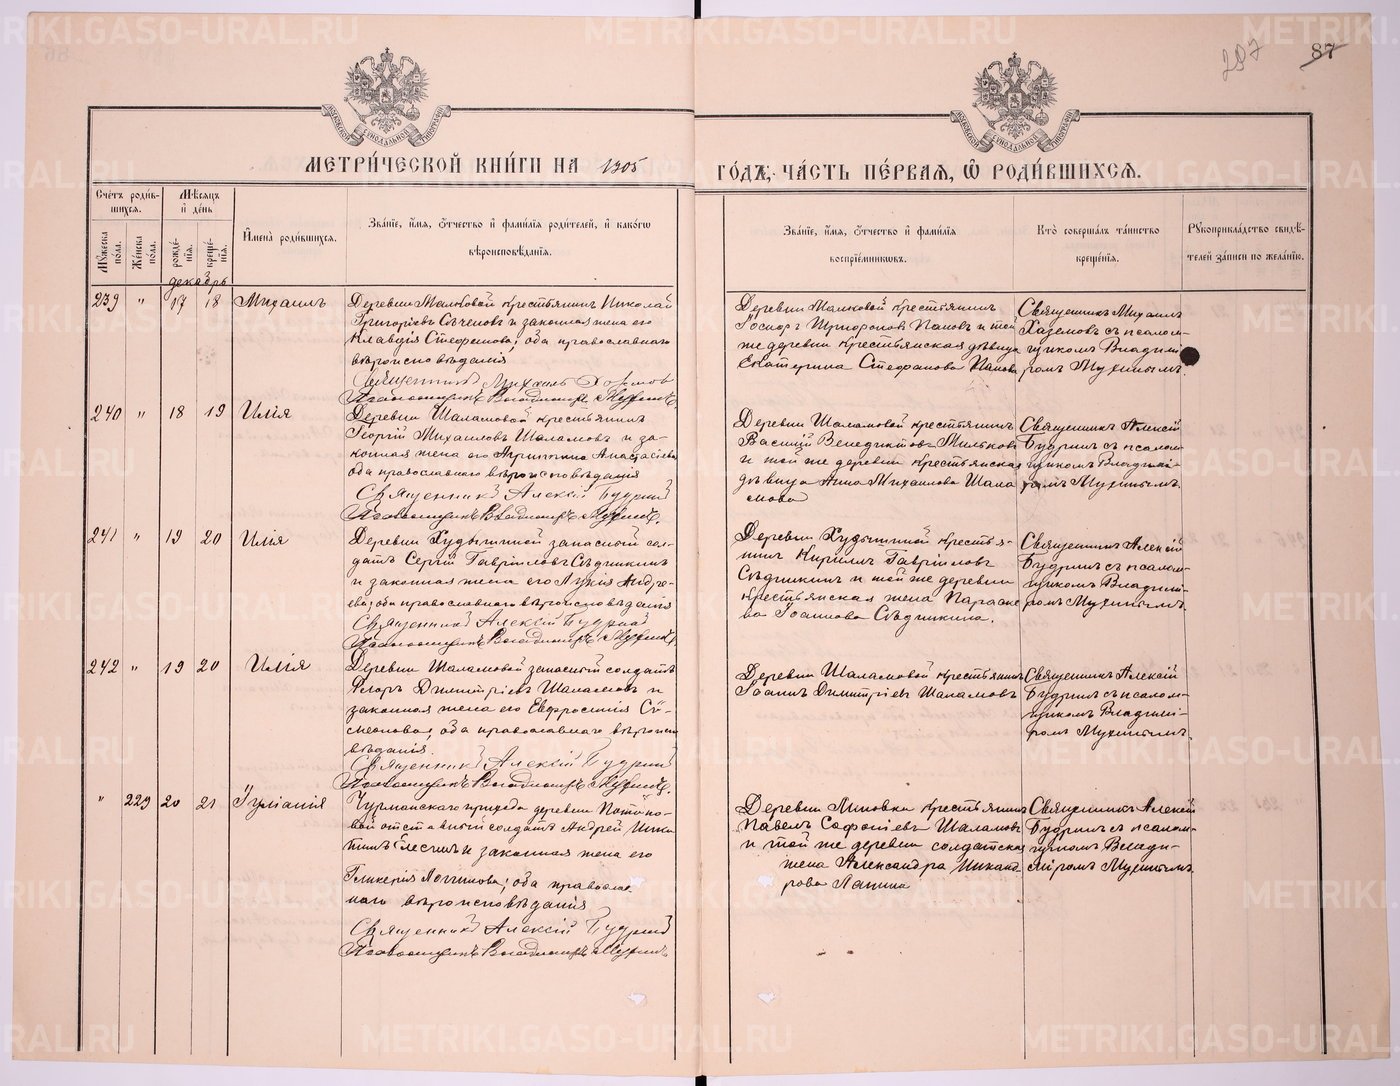 287 87
МЕТРИ́ЧЕСКОЙ КНИ́ГИ НА 1905 ГО́ДЪ, ЧА́СТЬ ПЕ́РВАЯ, Ѡ҆ РОДИ́ВШИХСЯ.
Сче́тъ роди́вшихся.
Мѣ́сяцъ и҆ де́нь
И҆мена̀ роди́вшихся.
Зва́нїе, и҆́мя, ѻ҆́тчество и҆ фами́лїя роди́телей, и҆ како́гѡ
вѣроисповѣ́данїя.
Зва́нїе, и҆́мя, ѻ҆́тчество и҆ фами́лїя
воспрїе́мниковъ.
Кто̀ соверша́лъ та́инство
креще́нїя.
Рꙋкоприкла́дство свидѣ́-
телей за́писи по жела́нїю.
Мꙋ́жеска по́ла.
Же́нска по́ла.
рожде́-нїя.
креще́-нїя.
декабрь
239 " 17 18 Михаилъ
Деревни Малковой крестьянинъ Николай
Григоріевъ Сѣченовъ и законная жена его
Клавдія Стефанова; оба православнаго
вѣроисповѣданія
Священникъ Михаилъ
Псаломщикъ Владимиръ Мухинъ.
Деревни Малковой крестьянинъ
Пановъ и той
же деревни крестьянская дѣвица
Екатерина Стефанова Панова
Священникъ Михаилъ
съ псалом-
щикомъ Владимі-
ромъ Мухинымъ.
240 " 18 19 Илія
Деревни Шаламовой крестьянинъ
Георгій Михаиловъ Шаламовъ и за-
конная жена его Агриппина Анастасіева
оба православнаго вѣроисповѣданія
Священникъ Алексій Будринъ
Псаломщикъ Владимиръ Мухинъ.
Деревни Шаламовой крестьянинъ
Василій Венедиктовъ Мильковъ
и той же деревни крестьянская
дѣвица Анна Михаилова Шала
мова
Священникъ Алексій
Будринъ съ псалом-
щикомъ Владимі-
ромъ Мухинымъ.
241 " 19 20 Илія
Деревни Худышиной запасный сол-
датъ Сергій Гавріиловъ Сѣдышкинъ
и законная жена его Лукія Андре-
ева; оба православнаго вѣроисповѣданія
Священникъ Алексій Будринъ
Псаломщикъ Владимиръ Мухинъ.
Деревни Худышиной крестья-
нинъ Кириллъ Гавріиловъ
Сѣдышкинъ и той же деревни
крестьянская жена Параске
ва Іоаннова Сѣдышкина.
Священникъ Алексій
Будринъ съ псалом-
щикомъ Владимі-
ромъ Мухинымъ.
242 " 19 20 Илія
Деревни Шаламовой запасный солдатъ
Флоръ Димитріевъ Шаламовъ и
законная жена его Евфросинія Си-
меонова; оба православнаго вѣроиспо
вѣданія.
Священникъ Алексій Будринъ
Псаломщикъ Владимиръ Мухинъ.
Деревни Шаламовой крестьянинъ
Іоаннъ Димитріевъ Шаламовъ
Священникъ Алексій
Будринъ съ псалом-
щикомъ Владимі-
ромъ Мухинымъ.
" 229 20 21 Іуліанія
прихода деревни
вой отставной солдатъ Андрей Ники
тинъ и законная жена его
Гликерія Логгинова; оба правосла
внаго вѣроисповѣданія
Священникъ Алексій Будринъ
Псаломщикъ Владимиръ Мухинъ.
Деревни Липовки крестьянинъ
Павелъ Софоніевъ Шаламовъ
и той же деревни солдатская
жена Александра Никанд
рова Лапина
Священникъ Алексій
Будринъ съ псалом-
щикомъ Влади-
міромъ Мухинымъ.
METRIKI.GASO-URAL.RU